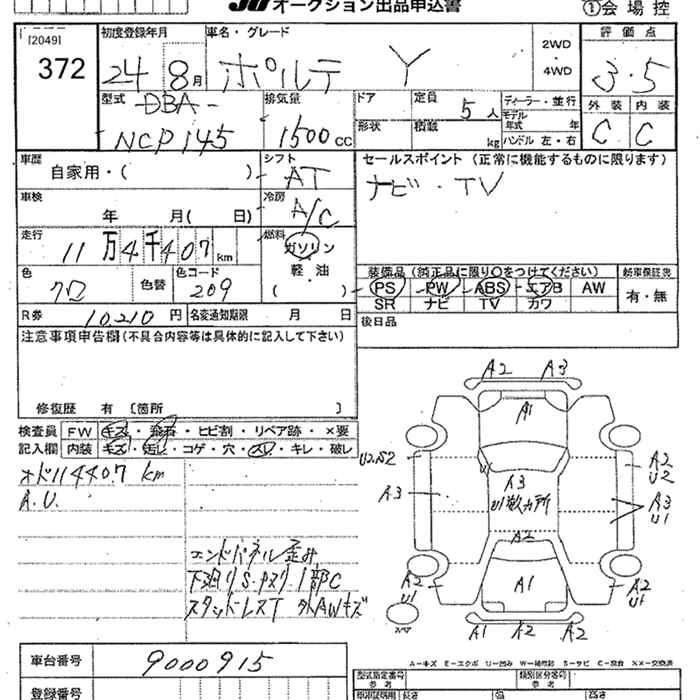 JU オークション出品申込書
①会場控
[2049]
372
初度登録年月
24 8月
車名・グレード
ポルテ Y
2WD
・
4WD
評価点
3.5
型式
DBA-
NCP145
排気量
1500cc
ドア
形状
定員 5人
積載 kg
ディーラー・並行
モデル年式 年
ハンドル 左・右
外装 内装
C C
車歴
自家用・( )
シフト
AT
セールスポイント (正常に機能するものに限ります)
ナビ・TV
車検
年 月( 日)
冷房
A/C
走行
11万4千407km
燃料
ガソリン
軽・油
( )
色
クロ
色替
色コード
209
装備品(純正品に限り○をつけてください)
PS PW ABS エアB AW
SR ナビ TV カワ
新車保証書
有・無
R券 10,210円
名変通知期限 月 日
後日品
注意事項申告欄(不具合内容等は具体的に記入して下さい)
修復歴 有 〔箇所 〕
検査員 FW キズ・飛石・ヒビ割・リペア跡・×要
記入欄 内装 キズ・汚レ・コゲ・穴・スレ・キレ・破レ
オド114407km
A.U.
エンドパネル歪み
下廻りS・キズ 1部C
スタッドレスT 外AWキズ
A2 A3
A1
U2.S2
A3
A3
U1数カ所
A2
U2
A3
U1
A2
A2
U1
A1
A2
U1
スペア
A1 A2 A2
A-キズ E-エクボ U-凹み W-補修跡 S-サビ C-腐食 XX-交換済
車台番号 9000915
登録番号
型式指定番号
参考
類別区分番号
参考
長さ 幅 高さ